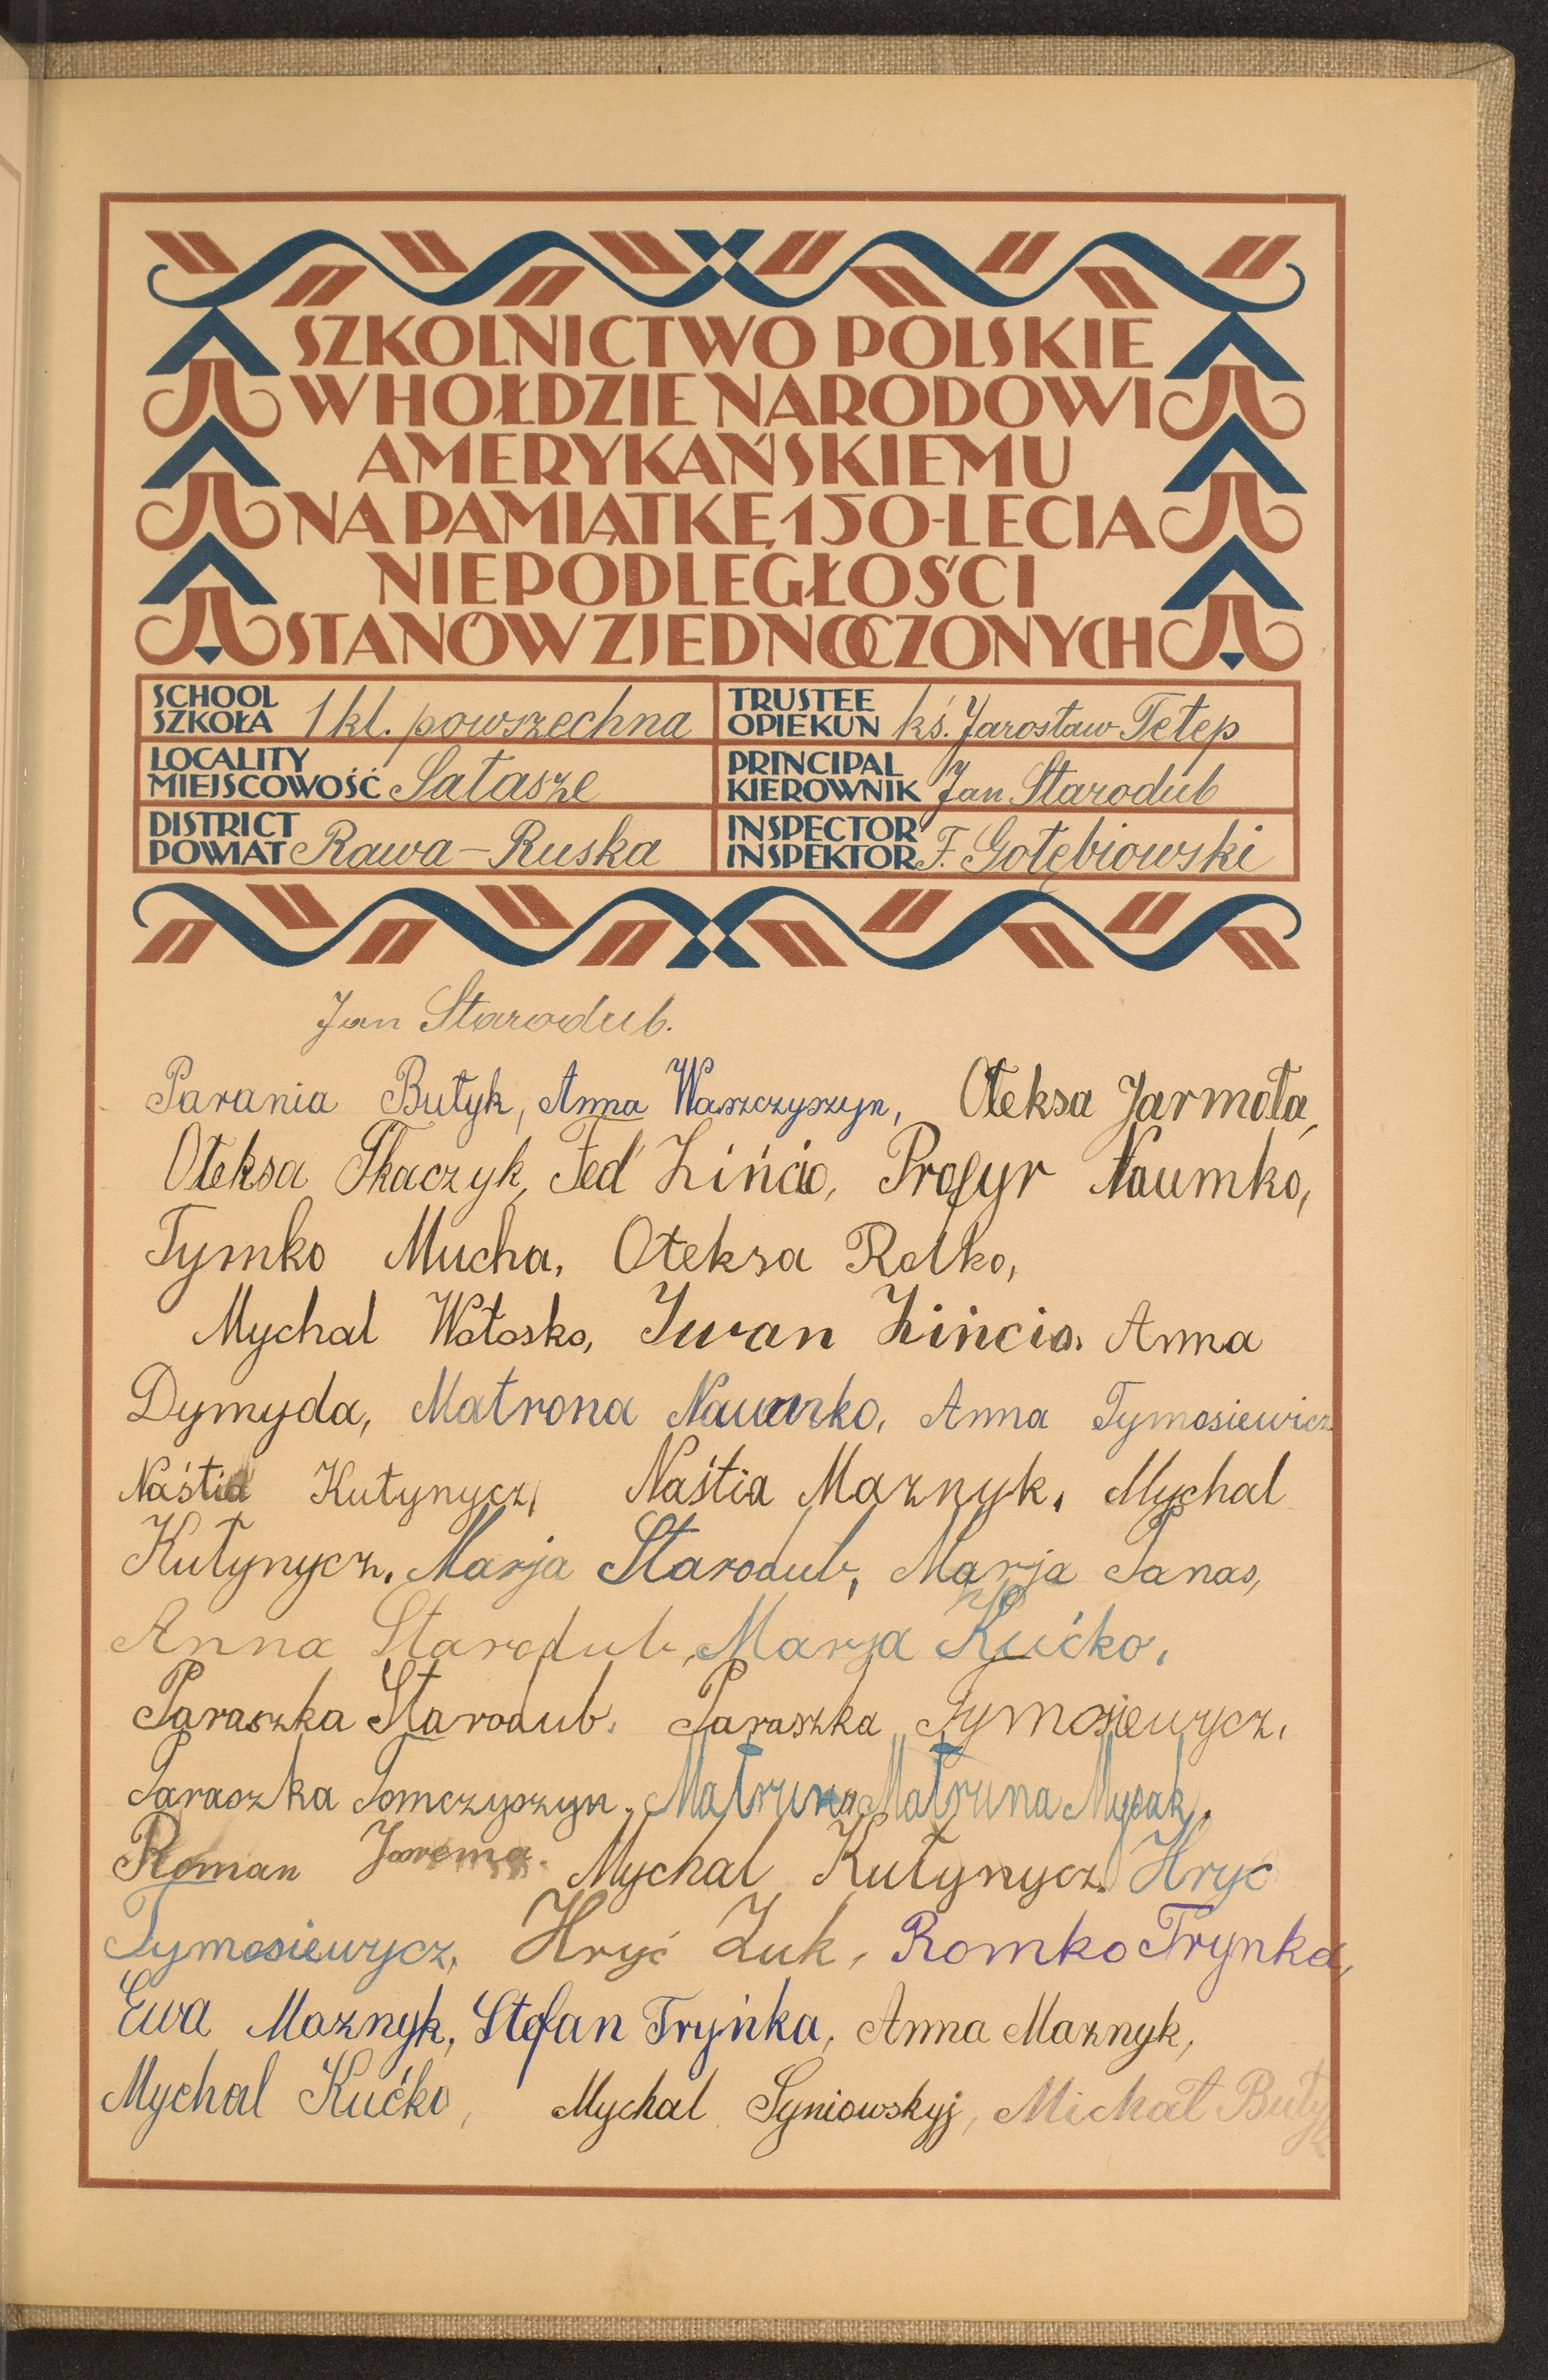 SZKOLNICTWO POLSKIE
W HOŁDZIE NARODOWI
AMERYKAŃSKIEMU
NA PAMIĄTKĘ 150-LECIA
NIEPODLEGŁOŚCI
STANÓW ZJEDNOCZONYCH
SCHOOL
SZKOŁA 1 kl. powszechna
TRUSTEE
OPIEKUN kś. Jarosław Tełep
LOCALITY
MIEJSCOWOŚĆ Sałasze
PRINCIPAL
KIEROWNIK Jan Starodub
DISTRICT
POWIAT Rawa-Ruska
INSPECTOR
INSPEKTOR F. Gołębiowski
Jan Starodub.
Parania Bułyk, Anna Waszczyszyn, Ołeksa Jarmoła,
Ołeksa Tkaczyk, Fed' Zińcio, Profyr Naumko,
Tymko Mucha, Ołeksa Rolko,
Mychal Wołosko, Iwan Zińcio. Anna
Dymyda, Matrona Nawarko, Anna Tymosiewicz
Naśtia Kułynycz, Naśtia Maznyk, Mychal
Kułynycz, Marja Starodub, Marja Panas,
Anna Starodub, Marja Kućko,
Paraszka Starodub. Paraszka Tymosiewycz,
Paraszka Tomczyszyn, Matruna Matruna Mysak,
Roman Jarema. Mychal Kułynycz, Hryć
Tymosiewycz, Hryć Żuk, Romko Trynka,
Ewa Maznyk, Stefan Tryńka, Anna Maznyk,
Mychal Kućko, Mychal Syniowskyj, Michał Bułyk